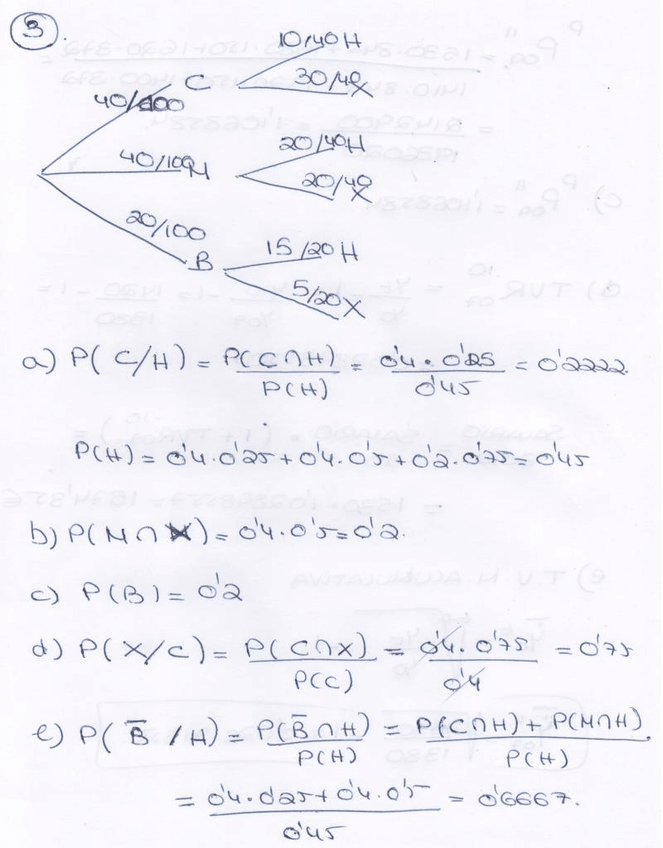 3
10/40 H
40/100 C 30/40 X
20/40 H
40/100 M
20/40 X
20/100 15/20 H
B
5/20 X
a) P(C/H) = P(C∩H) / P(H) = 0'4 · 0'25 / 0'45 = 0'2222.
P(H) = 0'4 · 0'25 + 0'4 · 0'5 + 0'2 · 0'75 = 0'45
b) P(M∩X) = 0'4 · 0'5 = 0'2.
c) P(B) = 0'2
d) P(X/C) = P(C∩X) / P(C) = 0'4 · 0'75 / 0'4 = 0'75
e) P(B̄/H) = P(B̄∩H) / P(H) = P(C∩H) + P(M∩H) / P(H).
= 0'4 · 0'25 + 0'4 · 0'5 / 0'45 = 0'6667.